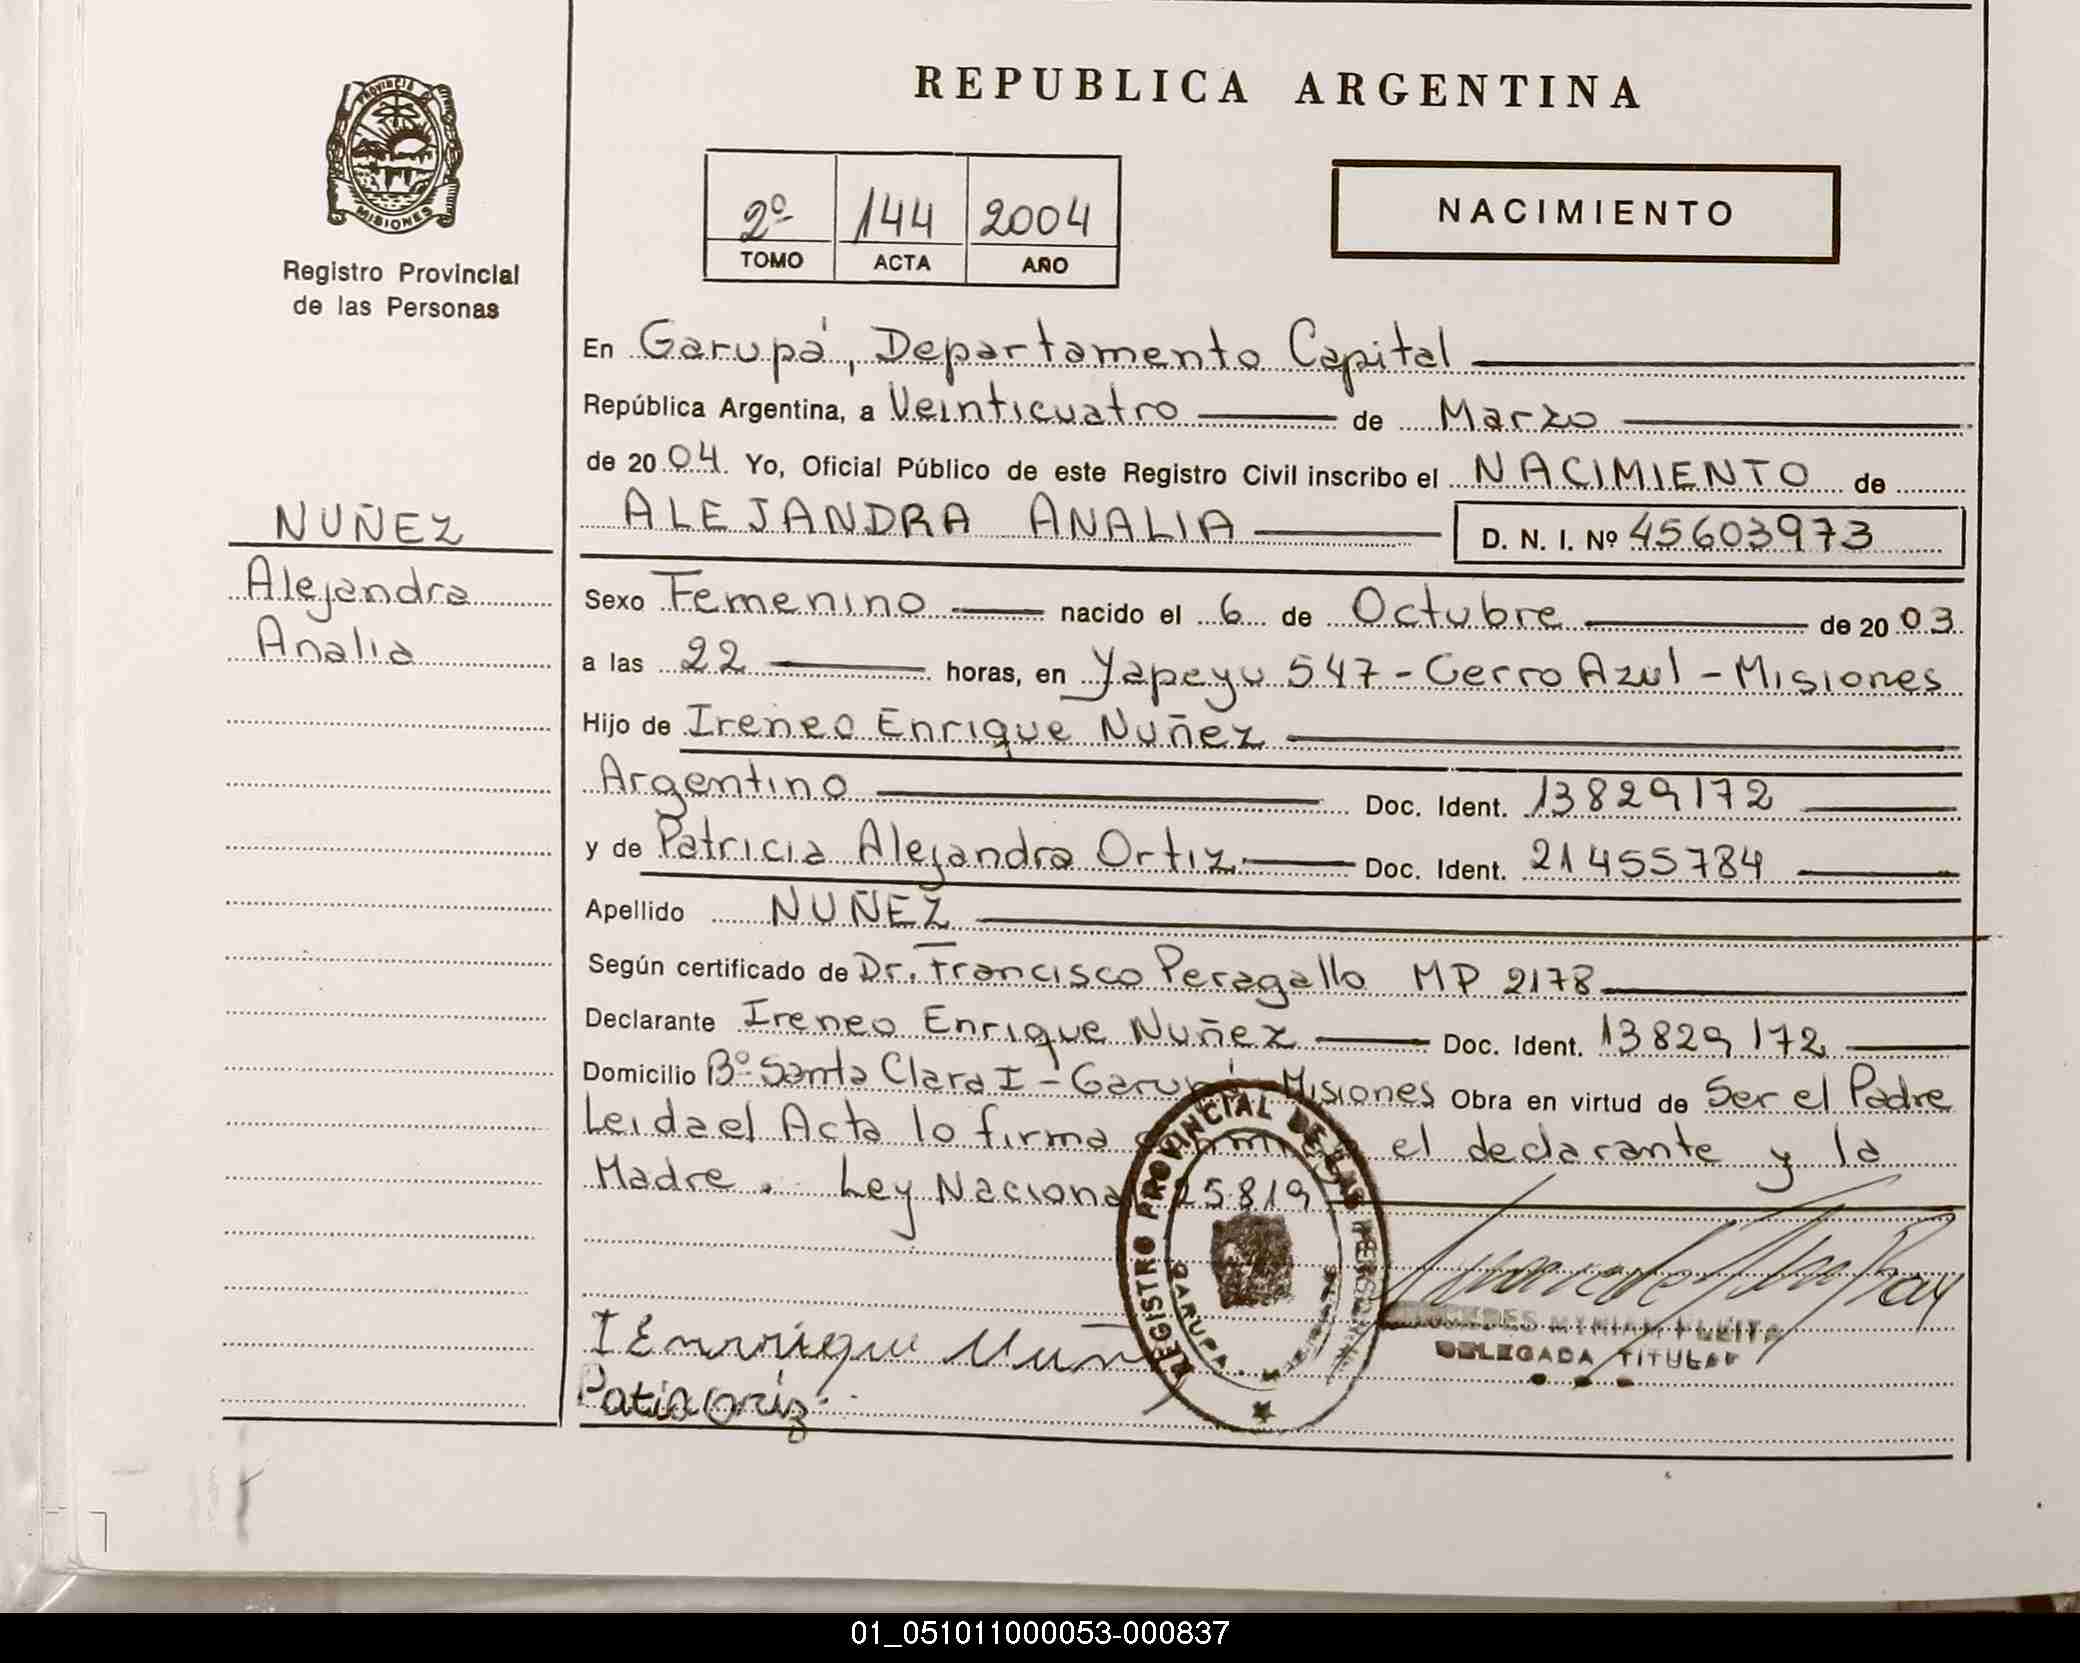 REPUBLICA ARGENTINA
PROVINCIA DE
MISIONES
Registro Provincial
de las Personas
2º 144 2004
TOMO ACTA AÑO
NACIMIENTO
En Garupá, Departamento Capital
República Argentina, a Veinticuatro de Marzo
de 2004. Yo, Oficial Público de este Registro Civil inscribo el NACIMIENTO de
ALEJANDRA ANALIA D. N. I. Nº 45603973
NUÑEZ
Alejandra
Analia
Sexo Femenino nacido el 6 de Octubre de 2003
a las 22 horas, en Yapeyu 547 - Cerro Azul - Misiones
Hijo de Ireneo Enrique Nuñez
Argentino Doc. Ident. 13829172
y de Patricia Alejandra Ortiz Doc. Ident. 21455784
Apellido NUÑEZ
Según certificado de Dr. Francisco Peragallo MP 2178
Declarante Ireneo Enrique Nuñez Doc. Ident. 13829172
Domicilio Bº Santa Clara I - Garupá Misiones Obra en virtud de Ser el Padre
Leida el Acta lo firma el declarante y la
Madre. Ley Nacional 25.819
REGISTRO PROVINCIAL DE LAS PERSONAS
GARUPA
MYRIAM FLEITA
DELEGADA TITULAR
I Enrrique Nuñ
01_051011000053-000837